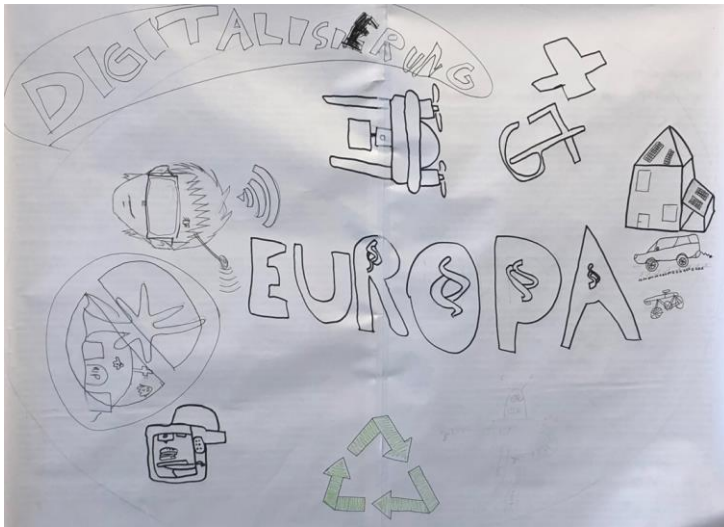 DIGITALISIERUNG
5G+
EUROPA